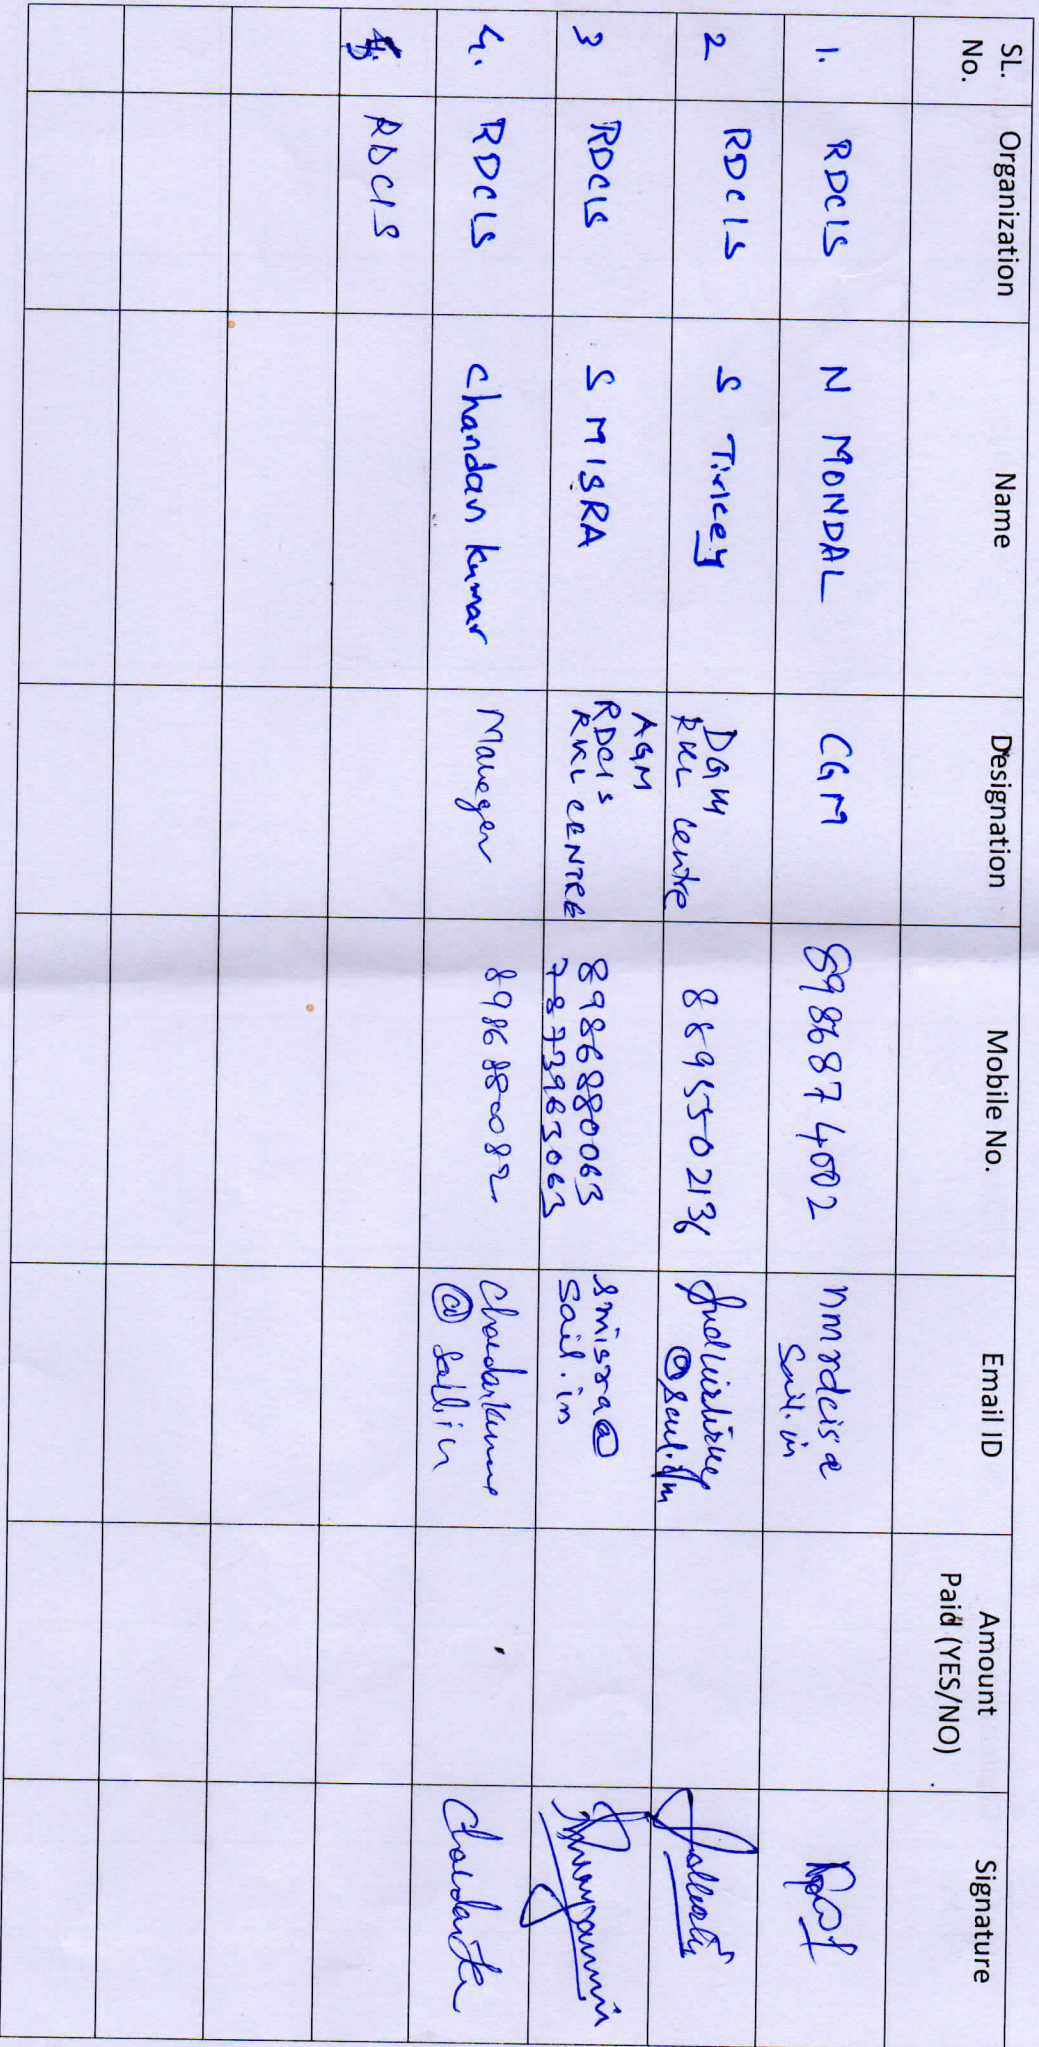 SL. No.	Organization	Name	Designation	Mobile No.	Email ID	Amount Paid (YES/NO)	Signature
1.	RDCIS	N MONDAL	CGM	8986874002	nmrdcis@ sail.in
2	RDCIS	S Tirkey	DGM RKL Centre	8895502136	@sail.in
3	RDCIS	S MISRA	AGM RDCIS RKL CENTRE	8986880063 7873963063	smisra@ sail.in
4.	RDCIS	Chandan kumar	Manager	8986880082	@ sail.in
5.	RDCIS